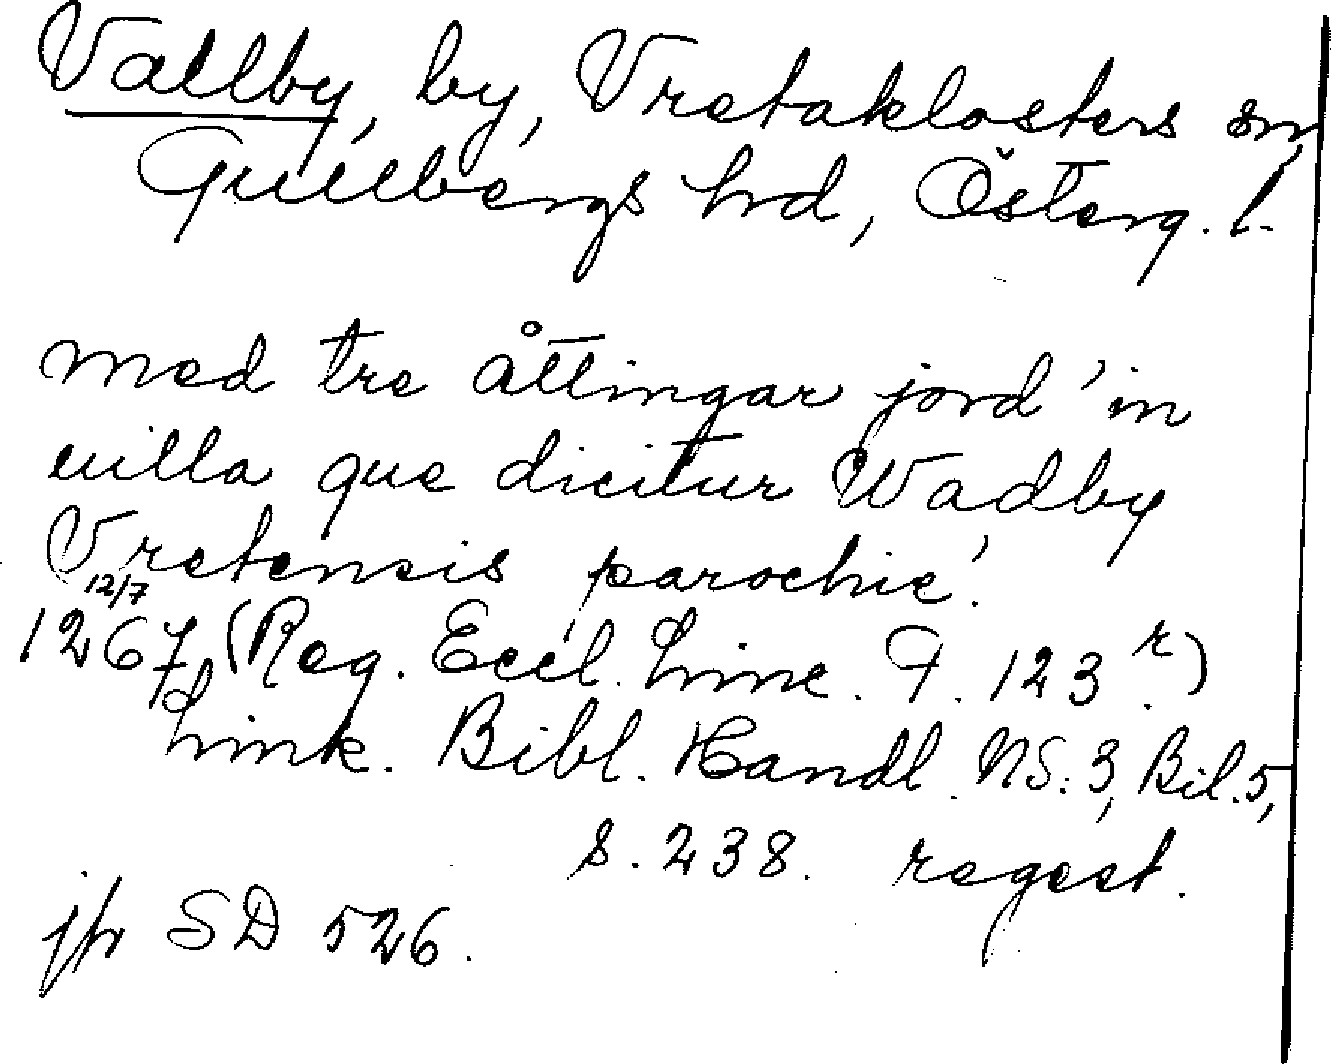 Vallby, by, Vretaklosters sn,
Gullbergs hrd, Österg. l.
med tre åttingar jord 'in
uilla que dicitur Wadby
Vretensis parochie'.
12/7
1267 (Reg. Eccl. Linc. F. 123 r.)
Link. Bibl. Handl. NS: 3, Bil. 5,
s. 238. regest.
jfr SD 526.